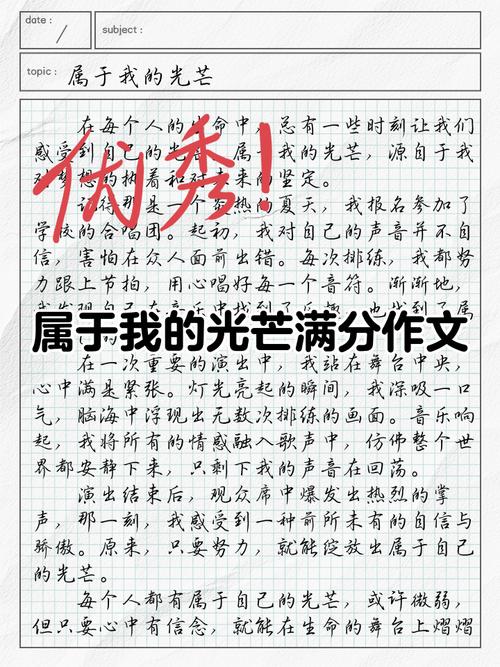 date :
subject :
topic : 属于我的光芒
在每个人的生命中，总有一些时刻让我们
感受到自己的光芒。属于我的光芒，源自于我
对梦想的执着和对未来的坚定。
记得那是一个炎热的夏天，我报名参加了
学校的合唱团。起初，我对自己的声音并不自
信，害怕在众人面前出错。每次排练，我都努
力跟上节拍，用心唱好每一个音符。渐渐地，
优秀！
属于我的光芒满分作文
在一次重要的演出中，我站在舞台中央，
心中满是紧张。灯光亮起的瞬间，我深吸一口
气，脑海中浮现出无数次排练的画面。音乐响
起，我将所有的情感融入歌声中，仿佛整个世
界都安静下来，只剩下我的声音在回荡。
演出结束后，观众席中爆发出热烈的掌
声，那一刻，我感受到一种前所未有的自信与
骄傲。原来，只要努力，就能绽放出属于自己
的光芒。
每个人都有属于自己的光芒，或许微弱，
但只要心中有信念，就能在生命的舞台上熠熠